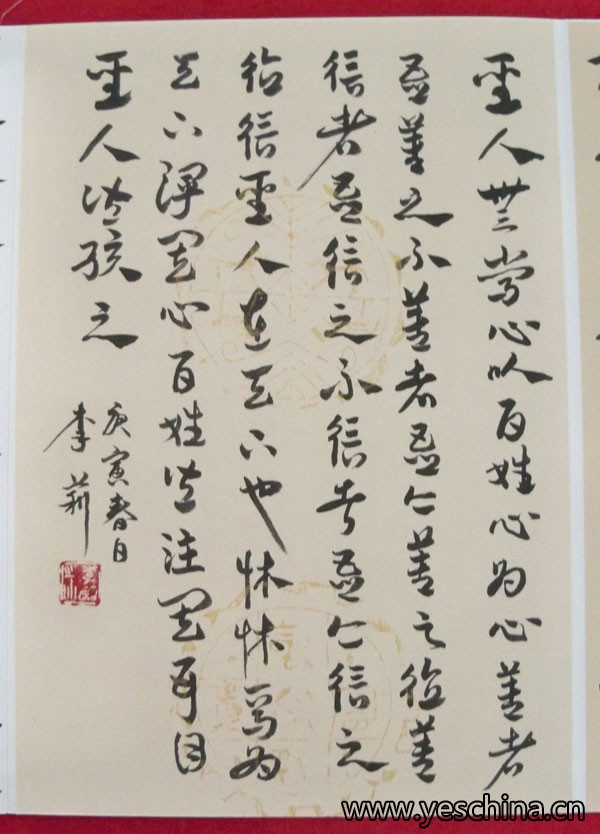 聖人無常心以百姓心為心善者
吾善之不善者吾亦善之德善
信者吾信之不信者吾亦信之
德信聖人在天下也怵怵焉為
天下渾其心百姓皆注其耳目
聖人皆孩之
庚寅春日
李莉
www.yeschina.cn